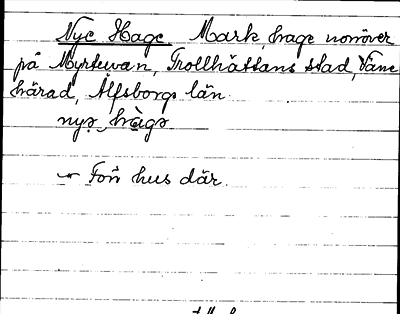 Nye Hage Mark, hage norröver
på Myrtuvan, Trollhättans stad, Väne
härad, Älfsborgs län.
nyə hàgə
Förr hus där.